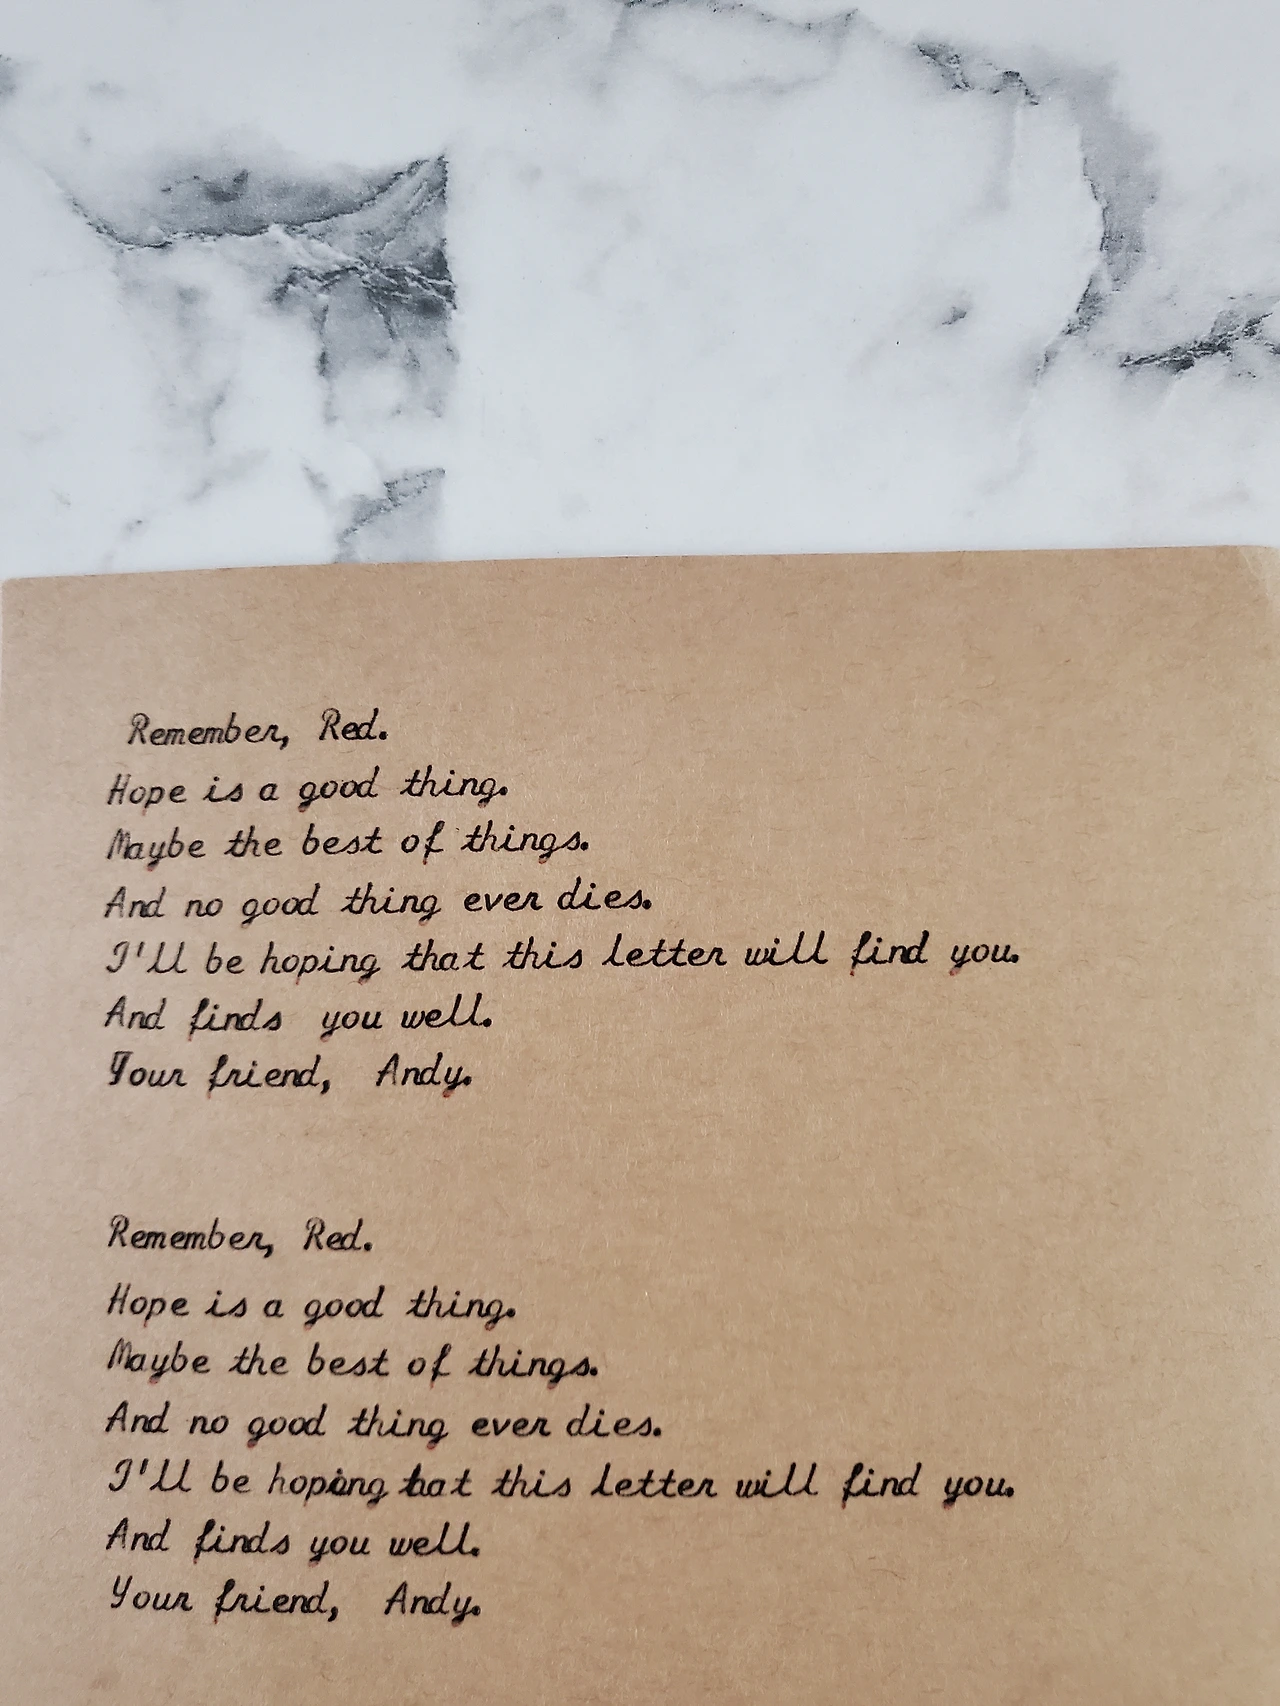 Remember, Red.
Hope is a good thing.
Maybe the best of things.
And no good thing ever dies.
I'll be hoping that this letter will find you.
And finds you well.
Your friend, Andy.
Remember, Red.
Hope is a good thing.
Maybe the best of things.
And no good thing ever dies.
I'll be hoping that this letter will find you.
And finds you well.
Your friend, Andy.